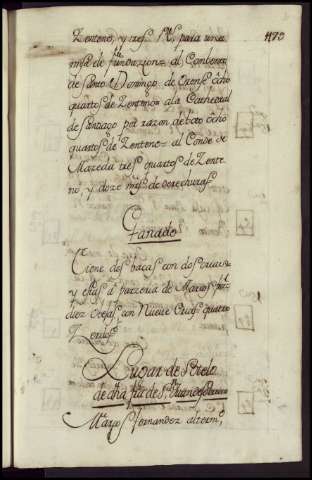 470
Zenteno, y tres Rs para una
misa de fundazion= al Conbento
de Santo Domingo de Orense ocho
quartos de Zenteno= a la Cathedral
de Santiago por razon de boto ocho
quartos de Zenteno= al Conde de
Mazeda tres quartos de Zente
no y doze mrs de derechuras
Ganado
Tiene dos bacas con dos crias
y estas a parzeria de
diez obejas con Nueve crias quatro
Zerdos
Lugar de Sotelo
de dha fra de Sn Juan de
Marcos Fernandez